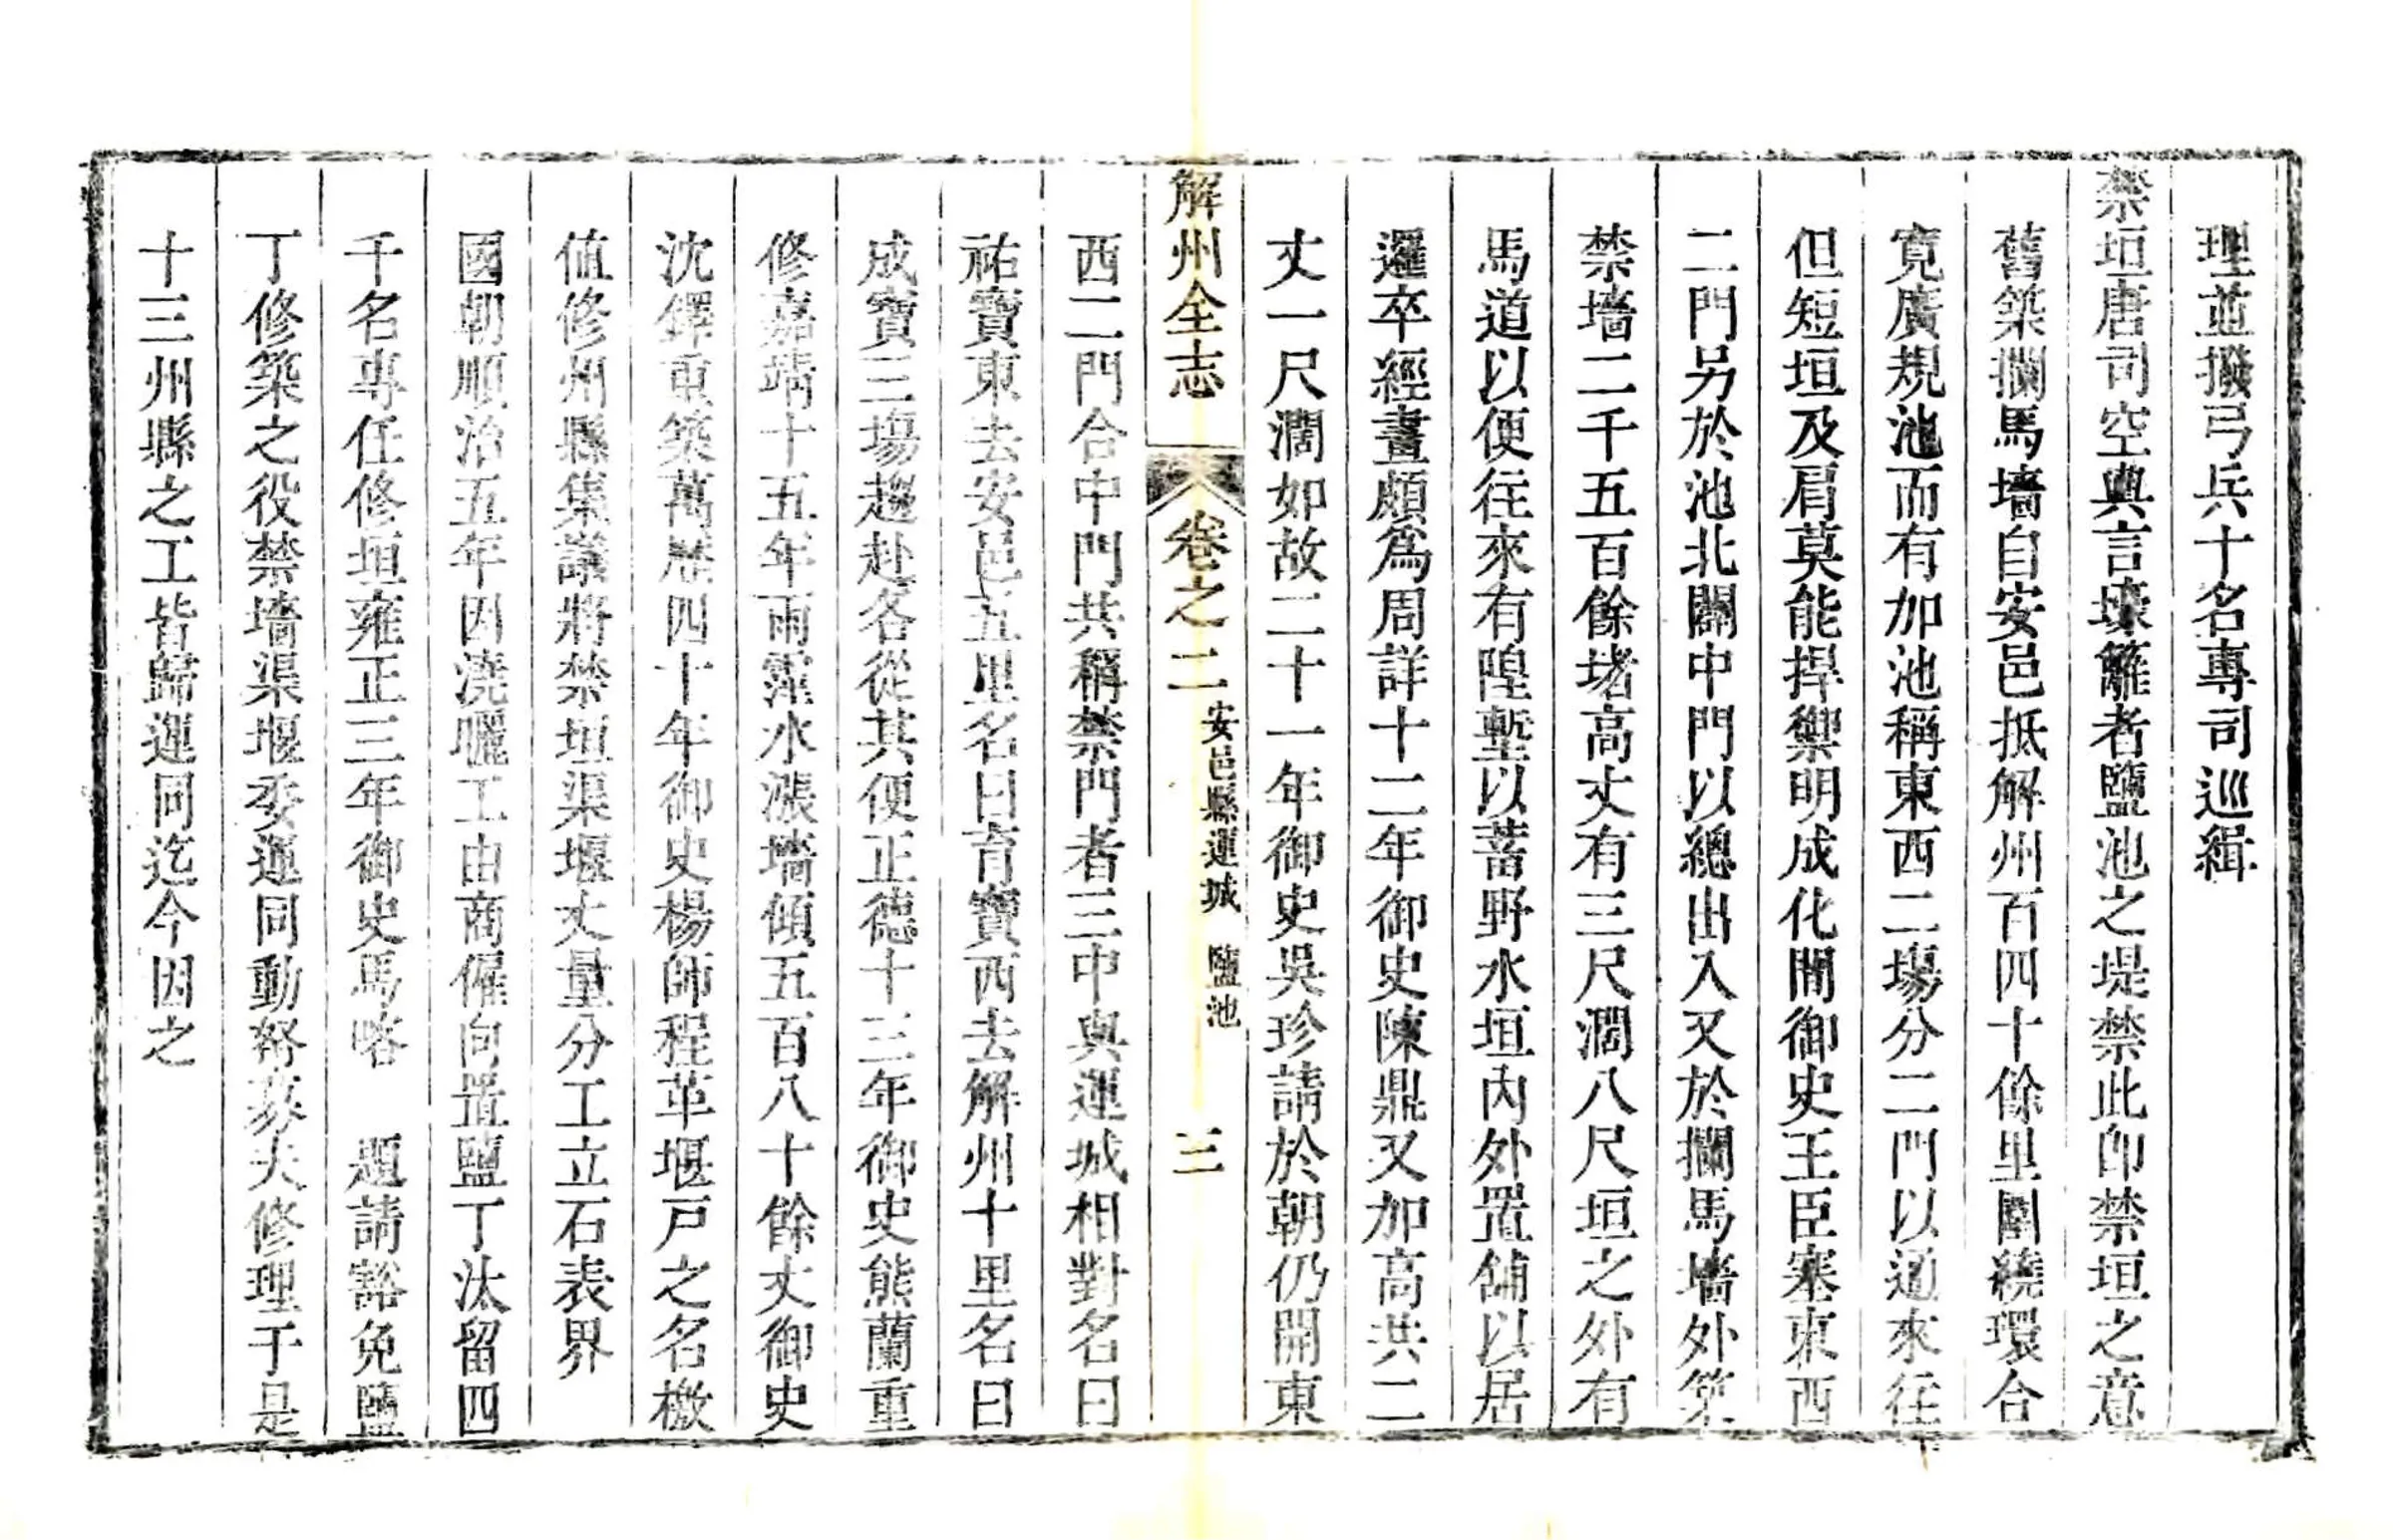 理並撥弓兵十名專司巡緝
禁垣唐司空輿言壕籬者鹽池之堤禁此卽禁垣之意
舊築攔馬墻自安邑抵解州百四十餘里圍繞環合
寛廣規池而有加池稱東西二場分二門以通來往
但短垣及肩莫能捍禦明成化間御史王臣塞東西
二門另於池北闢中門以總出入又於攔馬墻外築
禁墻二千五百餘堵高丈有三尺濶八尺垣之外有
馬道以便往來有隍塹以蓄野水垣內外置舖以居
邏卒經畫頗爲周詳十二年御史陳鼎又加高共二
丈一尺濶如故二十一年御史吳珍請於朝仍開東
解州全志 卷之二 安邑縣運城 鹽池 三
西二門合中門共稱禁門者三中與運城相對名曰
祐寶東去安邑五里名曰育寶西去解州十里名曰
成寶三塲趨赴各從其便正德十三年御史熊蘭重
修嘉靖十五年雨霪水漲墻傾五百八十餘丈御史
沈鐸重築萬歷四十年御史楊師程革堰戸之名檄
値修州縣集議將禁垣渠堰丈量分工立石表界
國朝順治五年因澆曬工由商僱向置鹽丁汰留四
千名專任修垣雍正三年御史馬喀 題請豁免鹽
丁修築之役禁墻渠堰委運同動帑募夫修理于是
十三州縣之工皆歸運同迄今因之